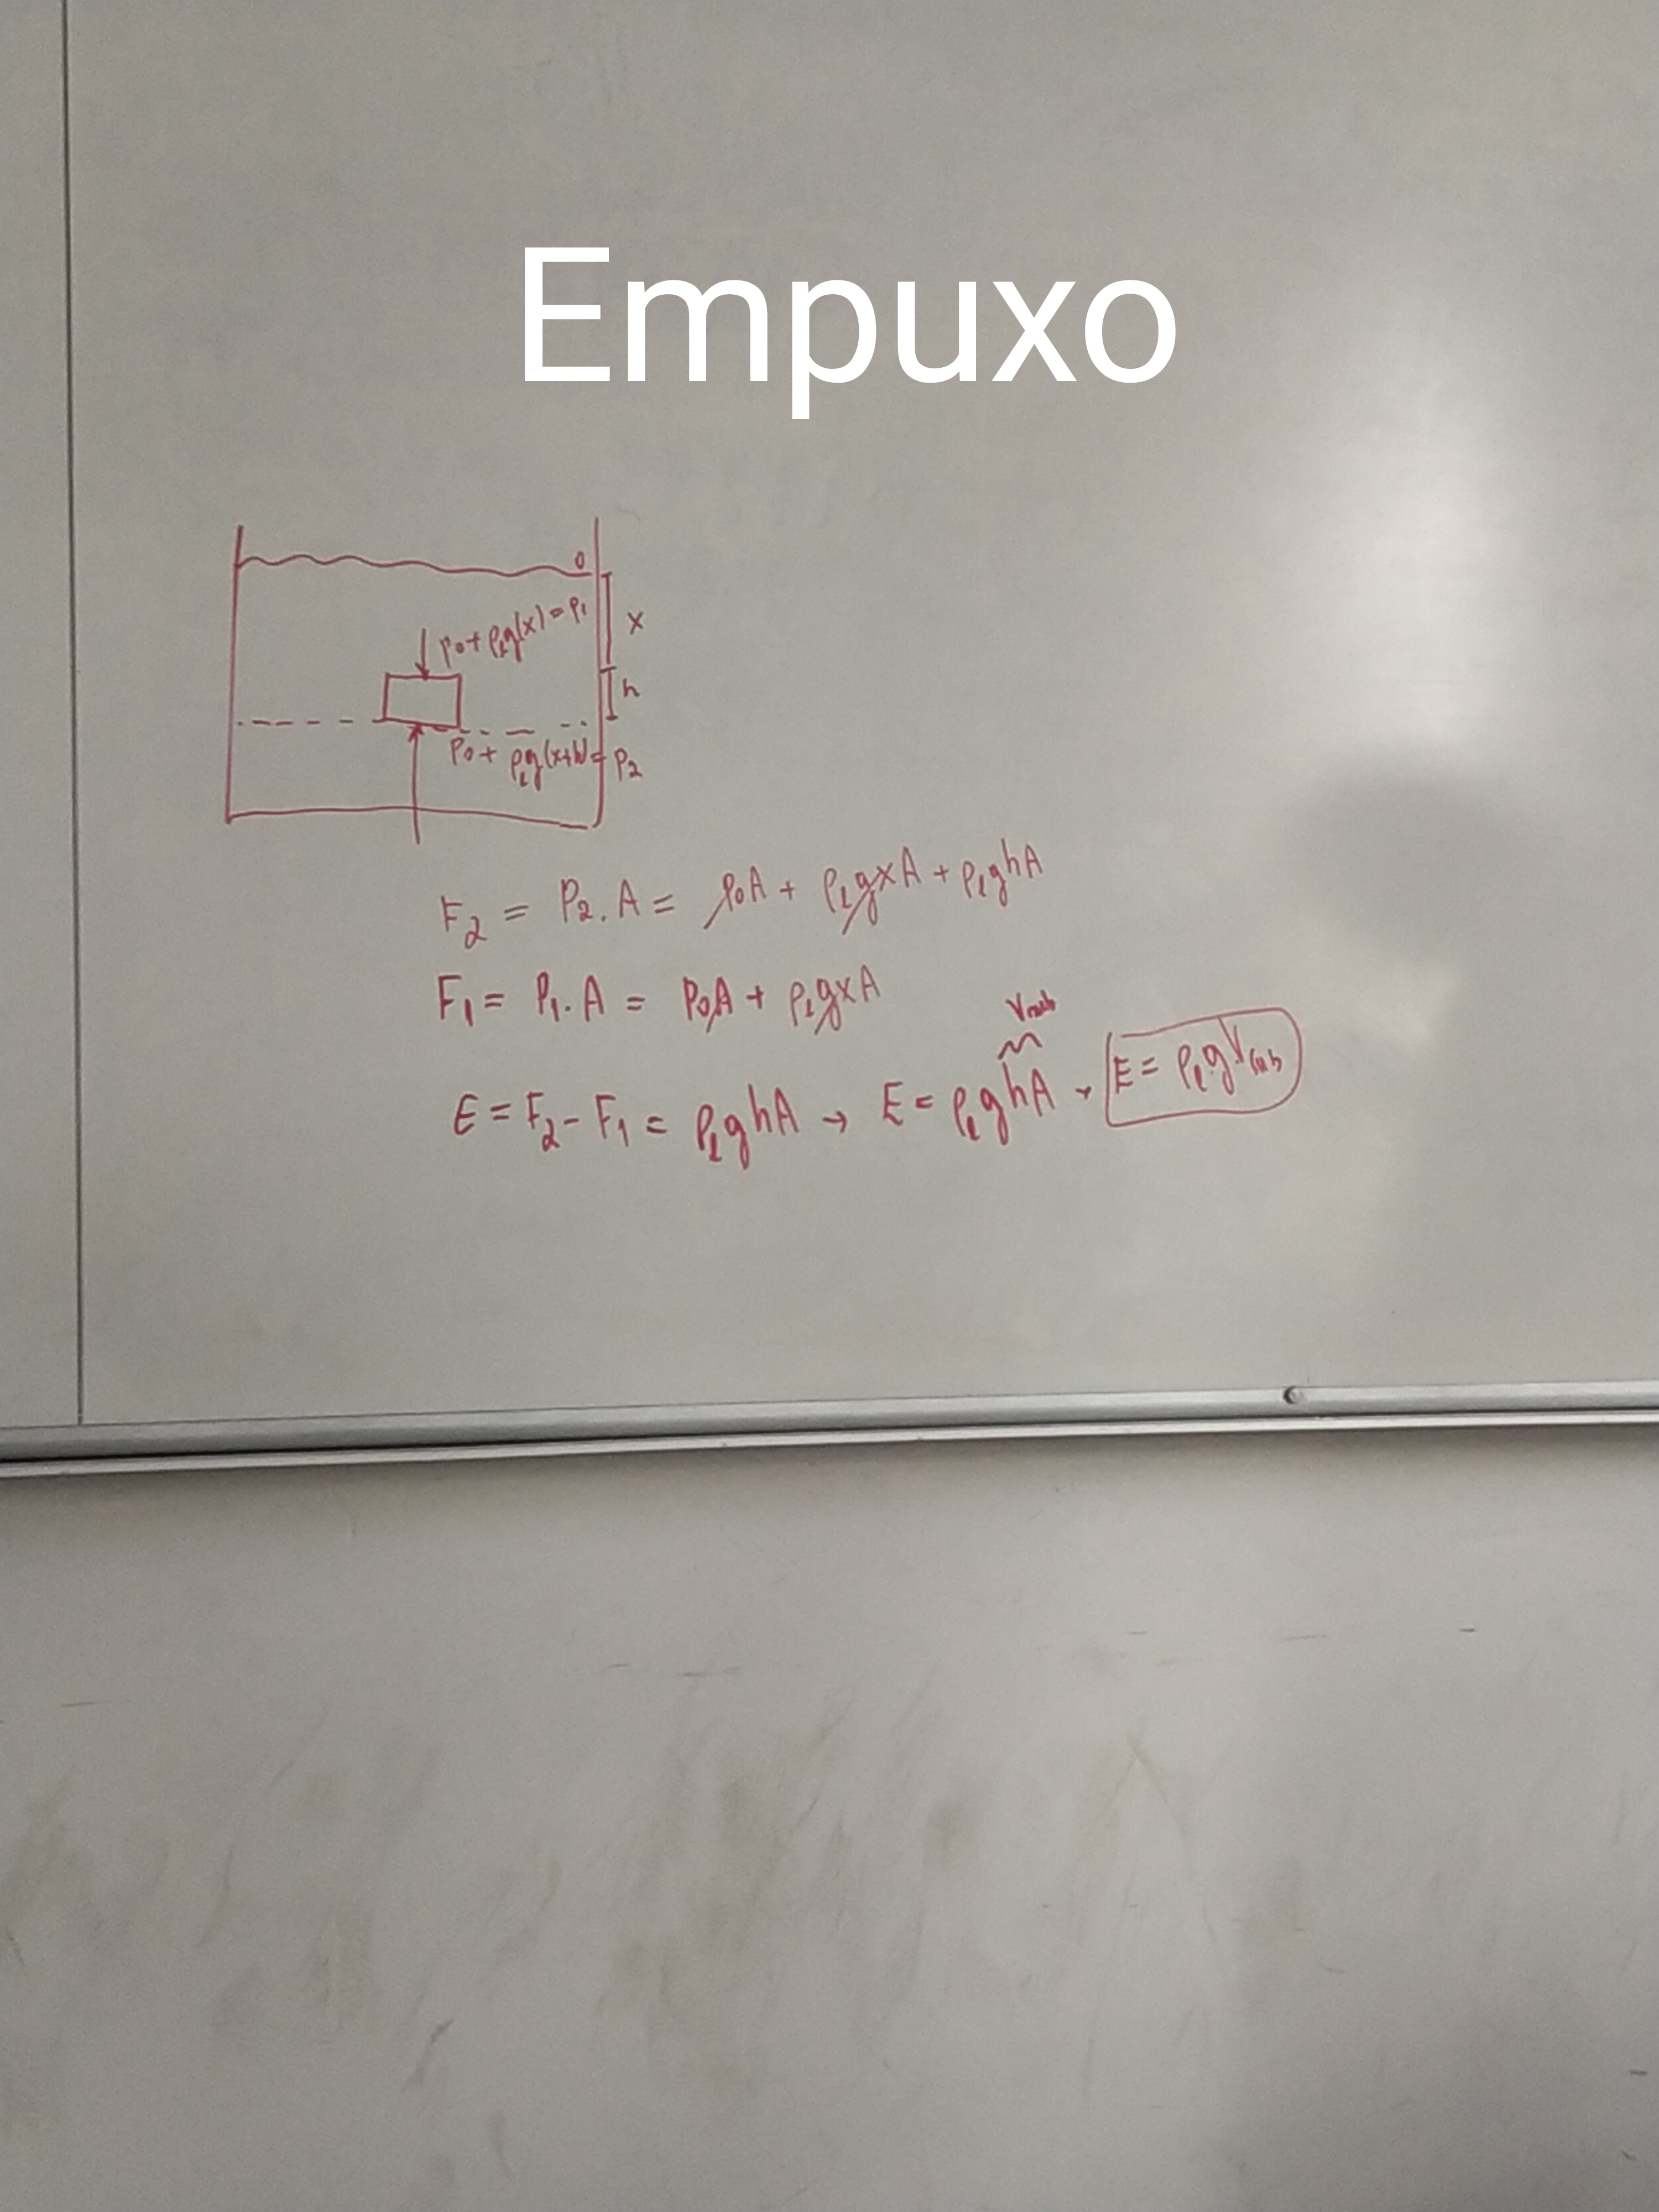 Empuxo
0
p₀ + ρ_L g(x) = p₁
x
h
p₀ + ρ_L g(x+h) = p₂
F₂ = P₂ . A = p₀A + ρ_L gxA + ρ_L ghA
F₁ = P₁ . A = p₀A + ρ_L gxA
V sub
E = F₂ - F₁ = ρ_L ghA → E = ρ_L ghA → E = ρ_L g V sub